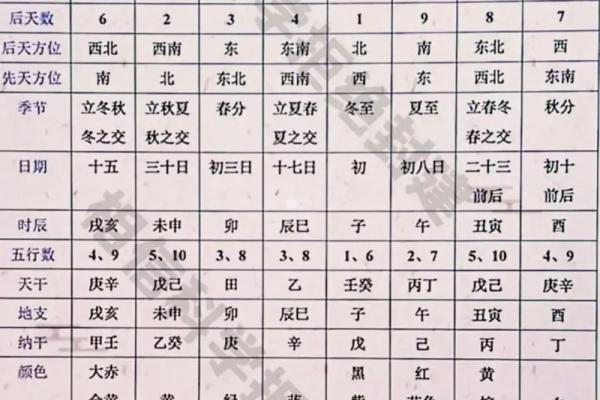 后天数 6 2 3 4 1 9 8 7
后天方位 西北 西南 东 东南 北 南 东北 西
先天方位 南 北 东北 西南 西 东 西北 东南
季节 立冬秋 立秋夏 春分 立夏春 冬至 夏至 立春冬 秋分
冬之交 秋之交 夏之交 春之交
日期 十五 三十日 初三日 十七日 初 初八日 二十三 初十
前后 前后
时辰 戌亥 未申 卯 辰巳 子 午 丑寅 酉
五行数 4、9 5、10 3、8 3、8 1、6 2、7 5、10 4、9
天干 庚辛 戊己 田 乙 壬癸 丙丁 戊己 庚辛
地支 戌亥 未申 卯 辰巳 子 午 丑寅 酉
纳干 甲壬 乙癸 庚 辛 戊 己 丙 丁
颜色 大赤 黑 红 黄
学拒绝封建
相信科学拒